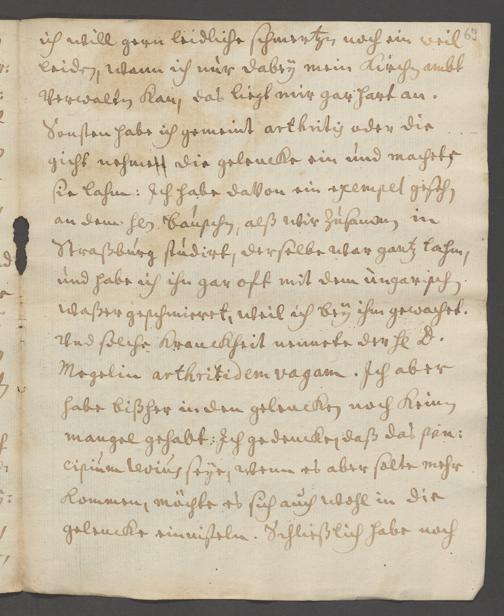 63
ich will gern leidliche schmertzen noch ein weil
leiden, wann ich nur dabeÿ mein Kirchen ambt
verwalten kan, das ligt mir gar hart an.
Sonsten habe ich gemeint arthritis oder die
gicht nehme die gelencke ein und machets
sie lahm: Ich habe davon ein exempel gesehen
an dem hen bauschen, alß wir zusamen in
Straßburg studirt, derselbe war gantz lahm,
und habe ich ihn gar oft mit dem ungarischen
waßer geschmieret, weil ich beÿ ihm gewachet.
Und solche Kranckheit nennete der he D.
Megelin arthritidem vagam. Ich aber
habe bißher in den gelencken noch keinen
mangel gehabt: Ich gedencke, daß das prin:
cipium seÿe, wenn es aber solte mehr
kommen, möchte es sich auch wohl in die
gelencke einnisteln. Schließlich habe noch